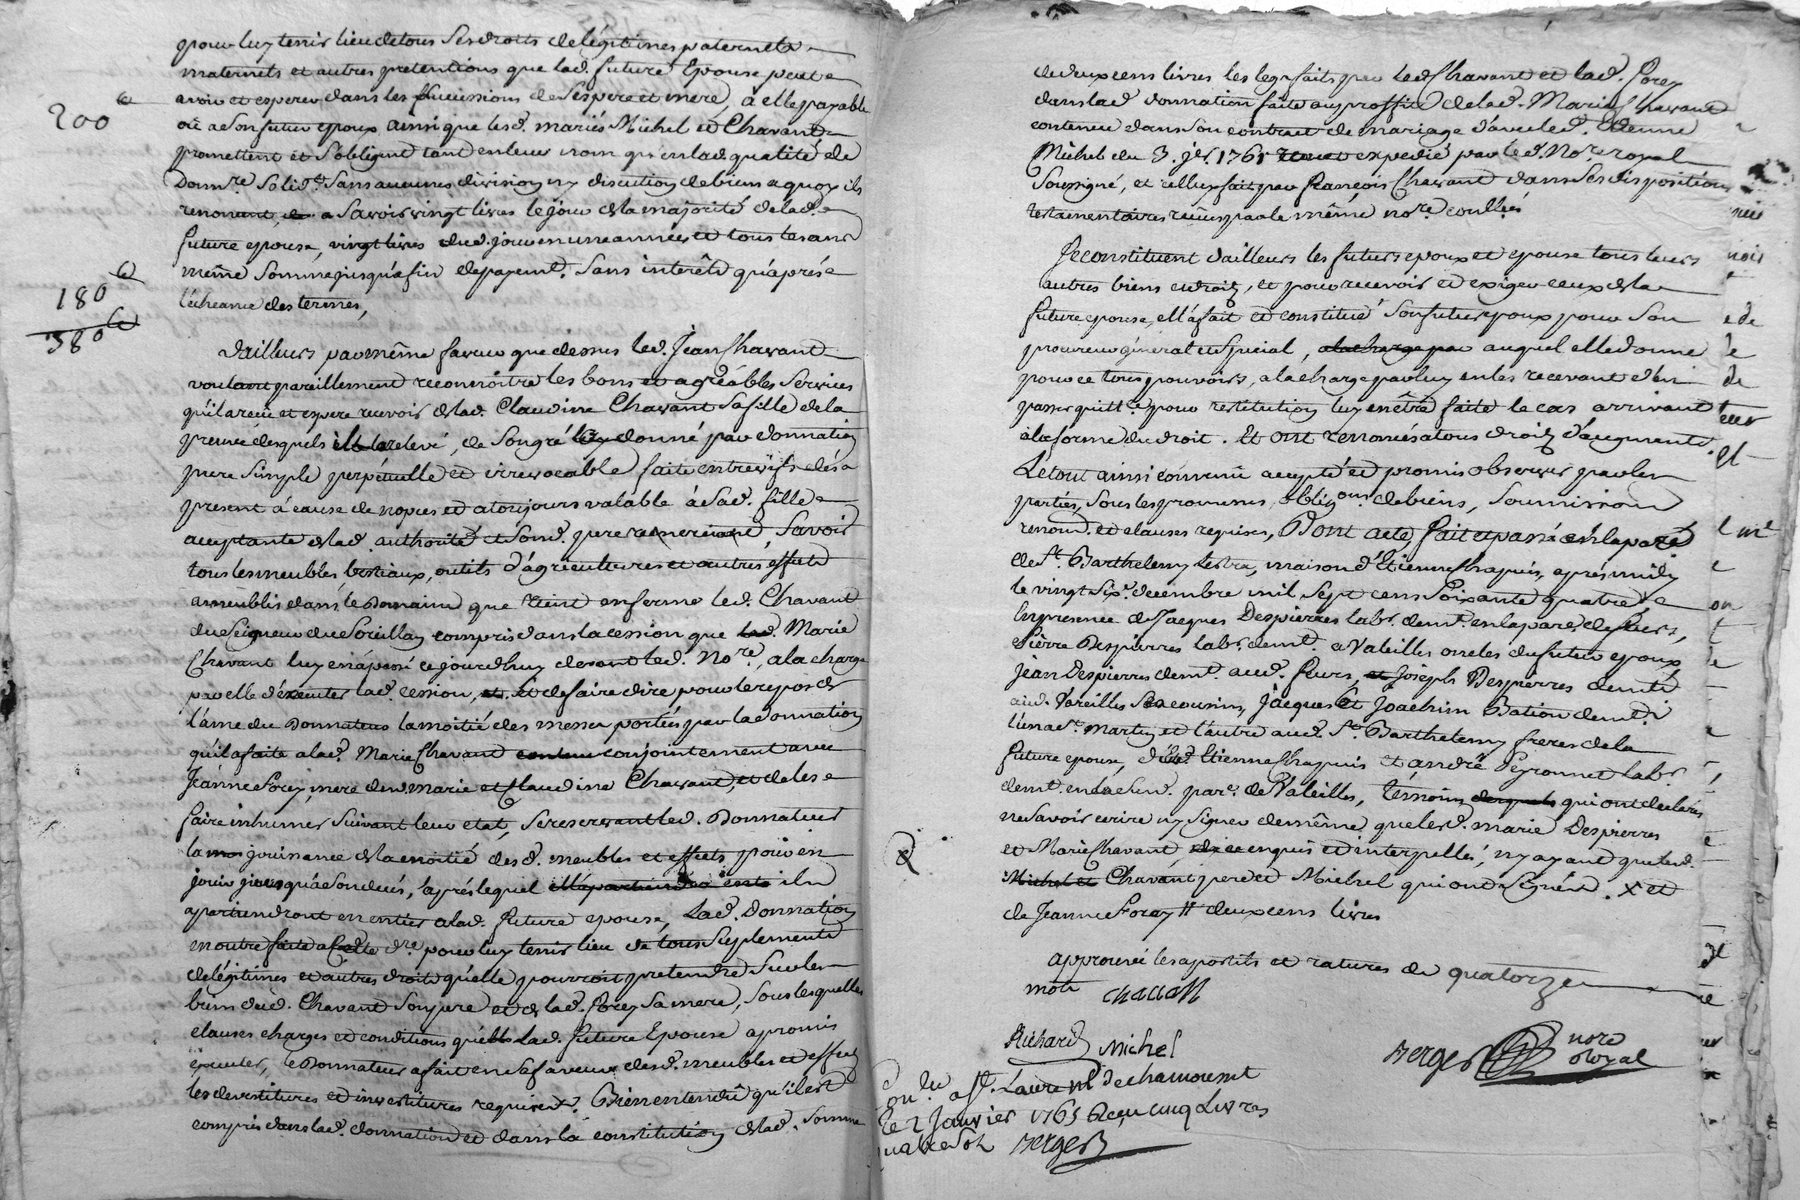 pour luy tenir lieu de tous ses droits de légitimes paternels
maternels et autres pretentions que lad. future Epouse peut
avoir et esperer dans les successions de ses pere et mere, à elle payable
200 ₶
ou a son futur epoux ainsi que lesd. mariés Michel et Chavant
promettent et s'obligent tant en leur nom qu'en lad. qualité de
Donnre. solidt. sans aucunes division ny discution de biens a quoy ils
renoncent, a savoir vingt livres le jour de la majorité de lad.
future epouse, vingt livres dud. jour en une année et tous les ans
même somme jusqu'a fin de payemt. sans interêts qu'aprés
l'écheance des termes,
180 ₶
380 ₶
d'ailleurs par même faveur que dessus led. Jean Chavant
voulant pareillement reconnoître les bons et agréables services
qu'il a reçu et espere recevoir de lad. Claudine Chavant sa fille de la
preuve desquels il la relevé, de son gré a donné par donnation
pure simple perpétuelle et irrevocable faite entre vifs dés a
present à cause de nopces et a toujours valable à sad. fille
acceptante de lad. authorité et sond. pere remerciant, savoir
tous les meubles bestiaux, outils d'agricultures et autres effets
ameublis dans le Domaine que tient en ferme led. Chavant
du seigneur de Sorillay compris dans la cession que Marie
Chavant luy en a passé ce jourdhuy devant led. Nore., a la charge
par elle d'éxecuter lad. cession, et de faire dire pour le repos de
l'ame du Donnateur la moitié des messes portées par la donnation
qu'il a faite a lad. Marie Chavant conjointement avec
Jeanne Forey, mere desd. marie et Claudine Chavant, et de les
faire inhumer suivant leur etat, se reservant led. Donnateur
la jouissance de la moitié desd. meubles et effets pour en
jouir jusqu'a son decés, aprés lequel ils
apartiendront en entier a lad. future epouse, Lad. Donnation
en outre faite a cette dre. pour luy tenir lieu de tous suplements
de légitimes et autres droits qu'elle pourroit pretendre sur les
biens dud. Chavant son pere et de lad. forey sa mere, sous lesquelles
clauses charges et conditions que lad. future Epouse a promis
éxecuter, le Donnateur a fait en sa faveur desd. meubles et effets
les devestitures et investitures requises. Bien entendu qu'il est
compris dans lad. donnation et dans la constitution de lad. somme
de deux cens livres les legs faits par led. Chavant et lad. Forey
dans lad. donnation faite au proffit de lad. Marie Chavant
contenue dans son contract de mariage d'avec led. Etienne
Michel du 3. jer. 1761 expedié par led. Nore. royal
soussigné, et celluy fait par françois Chavant dans ses dispositions
testamentaires reçues par le même nore.
Se constituent d'ailleurs les futurs epoux et epouse tous leurs
autres biens et droits, et pour recevoir et exiger ceux de la
future epouse, ell'a fait et constitué son futur epoux pour son
procureur général et special, auquel elle donne
pour ce tous pouvoirs, a la charge par luy en les recevant d'en
passer quittce. pour restitution luy en être faite le cas arrivant
a la forme du droit. Et ont renoncés a tous droits d'augments.
Le tout ainsi convenu accepté et promis observer par les
parties, sous les promesses, obligons. de biens, soumissions
renond. et clauses requises, Dont acte, fait et passé en la parse.
de St. Barthelemy Lestra, maison d'Etienne Chapuis, aprés midy
le vingt six. decembre mil sept cens soixante quatre,
En presence de Jacques Despierres labr. demt. en la parse. de feurs,
Pierre Despierres labr. demt. a Valeilles oncles du futur epoux
Jean Despierres demt. aud. feurs, Joseph Despierres demt.
aud. Valeilles ses cousins, Jacques et Joachim Bation demt.
l'un a St. martin et l'autre aud. St. Barthelemy freres de la
future epouse, dud. Etienne Chapuis et andré Peyronnet labr.
demt. en lad. parse. de Valeilles, témoins qui ont declarés
ne savoir ecrire ny signer de même que lesd. marie Despierres
et Marie Chavant, enquis et interpellés, n'y ayant que led.
Chavant pere et Michel qui ont signés. X et
de Jeanne Forey # deux cens livres
approuvé les apostils et ratures de quatorze
mots chauan
Richard Michel
Berger nore royal
Con. du st. Laurent de chamousset
le 2 janvier 1765 Reçu cinq Livres
quatre sols Berger